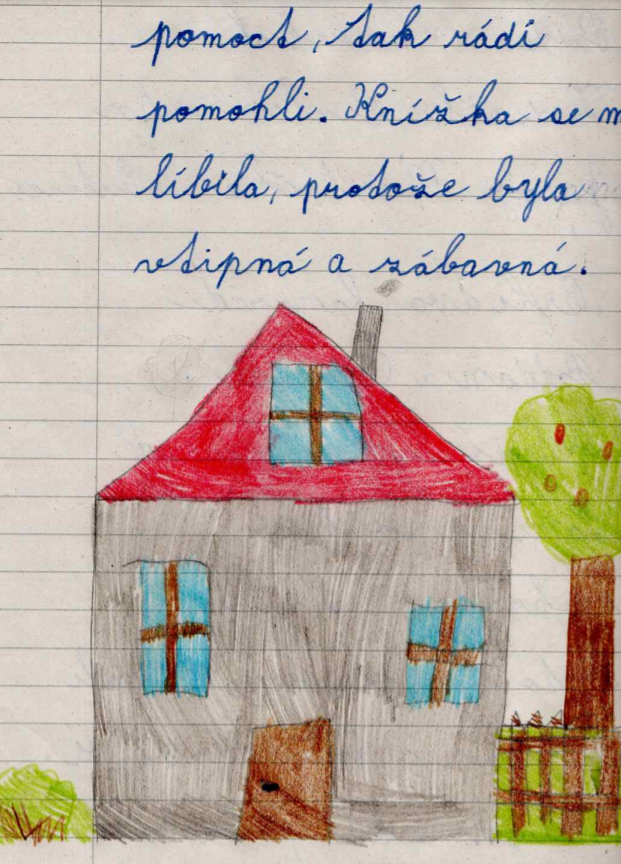 pomoct, tak rádi
pomohli. Knížka se m
líbila, protože byla
vtipná a zábavná.